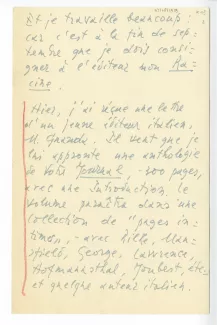 Et je travaille beaucoup :
car c'est à la fin de sep-
tembre que je dois consi-
gner à l'éditeur mon Ra-
cine.
Hier, j'ai reçu une lettre
d'un jeune éditeur italien,
M. Guanda. Il veut que je
lui appronte une anthologie
de votre Journal, - 200 pages,
avec une introduction. Le
volume paraîtra dans une
collection de "pages in-
times", - avec Rilke, Man-
sfield, George, Lawrence,
Hofmannsthal, etc.
et quelque auteur italien.